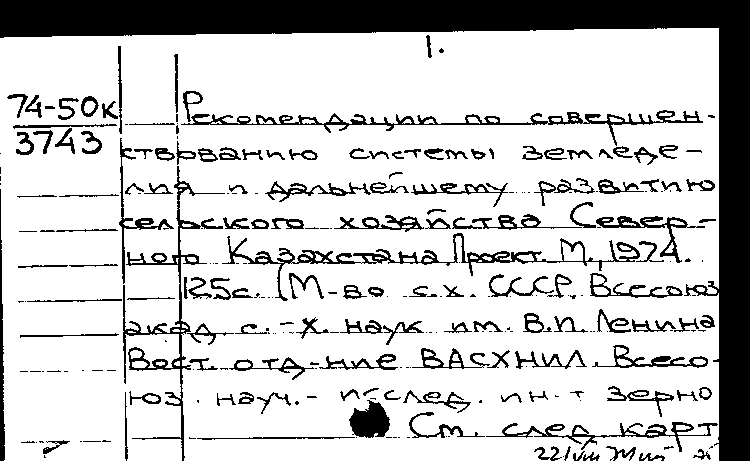 1.
74-50к
3743
Рекомендации по совершен-
ствованию системы земледе-
лия и дальнейшему развитию
сельского хозяйства Север-
ного Казахстана. Проект. М., 1974.
125с. (М-во с.х. СССР. Всесоюз
акад. с.-х. наук им. В.И. Ленина
Вост. отд-ние ВАСХНИЛ. Всесо-
юз. науч.- исслед. ин-т зерно
См. след. карт
22/VIII